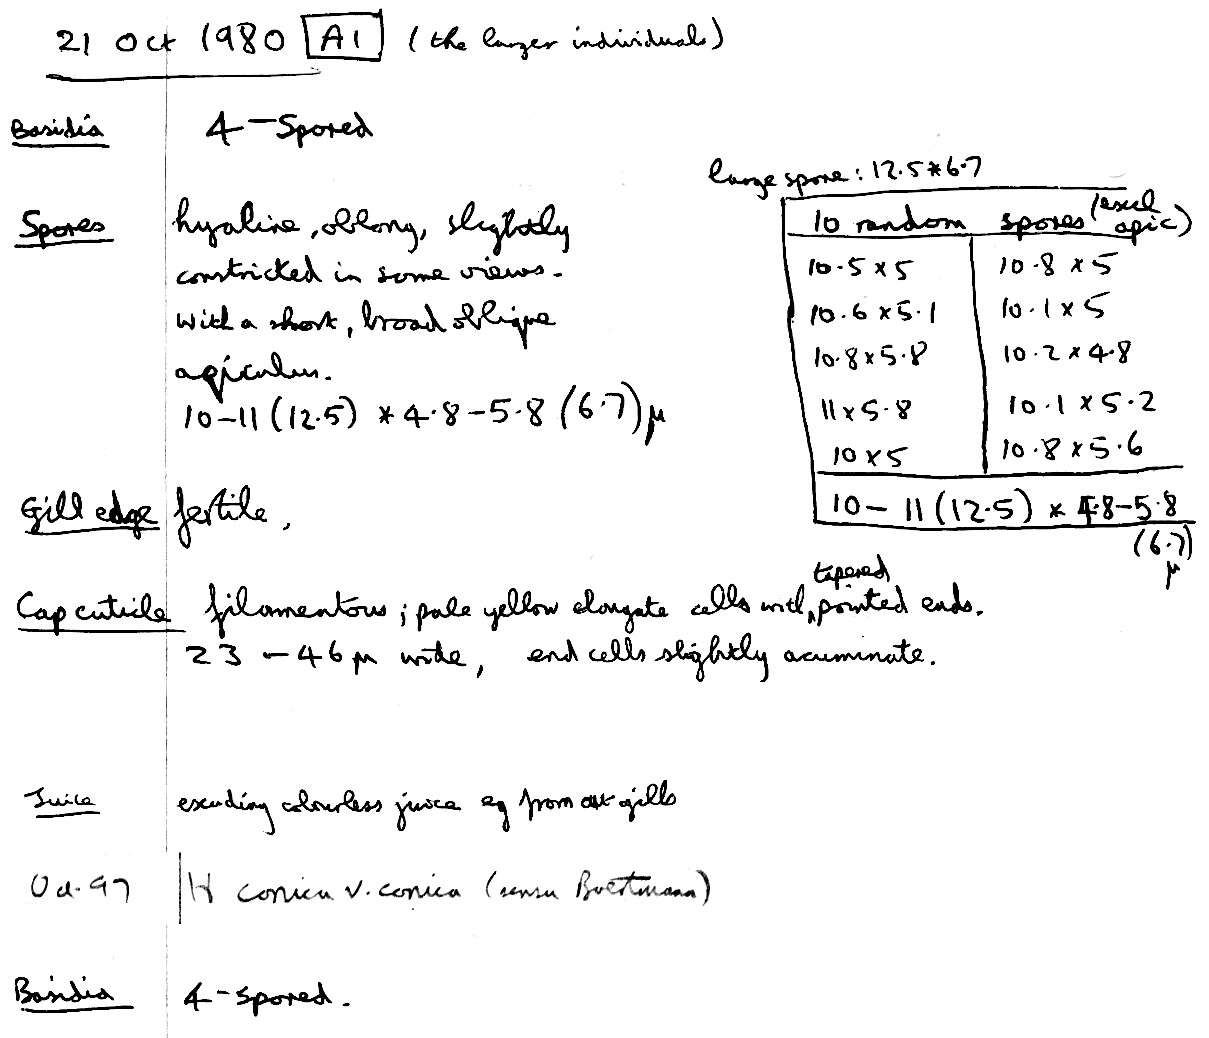 21 Oct 1980 A1 (the larger individuals)
Basidia 4-Spored
large spore: 12.5*6.7
10 random spores (excl apic)
10.5 x 5 10.8 x 5
10.6 x 5.1 10.1 x 5
10.8 x 5.8 10.2 x 4.8
11 x 5.8 10.1 x 5.2
10 x 5 10.8 x 5.6
10 - 11 (12.5) * 4.8-5.8
(6.7)
μ
Spores hyaline, oblong, slightly
constricted in some views.
With a short, broad oblique
apiculus.
10-11 (12.5) * 4.8-5.8 (6.7) μ
Gill edge fertile,
Cap cuticle filamentous; pale yellow elongate cells with tapered pointed ends.
23 - 46 μ wide, end cells slightly acuminate.
Juice exuding colourless juice eg from cut gills
Oct. 97 H conica v. conica (sensu Boertmann)
Basidia 4-spored.